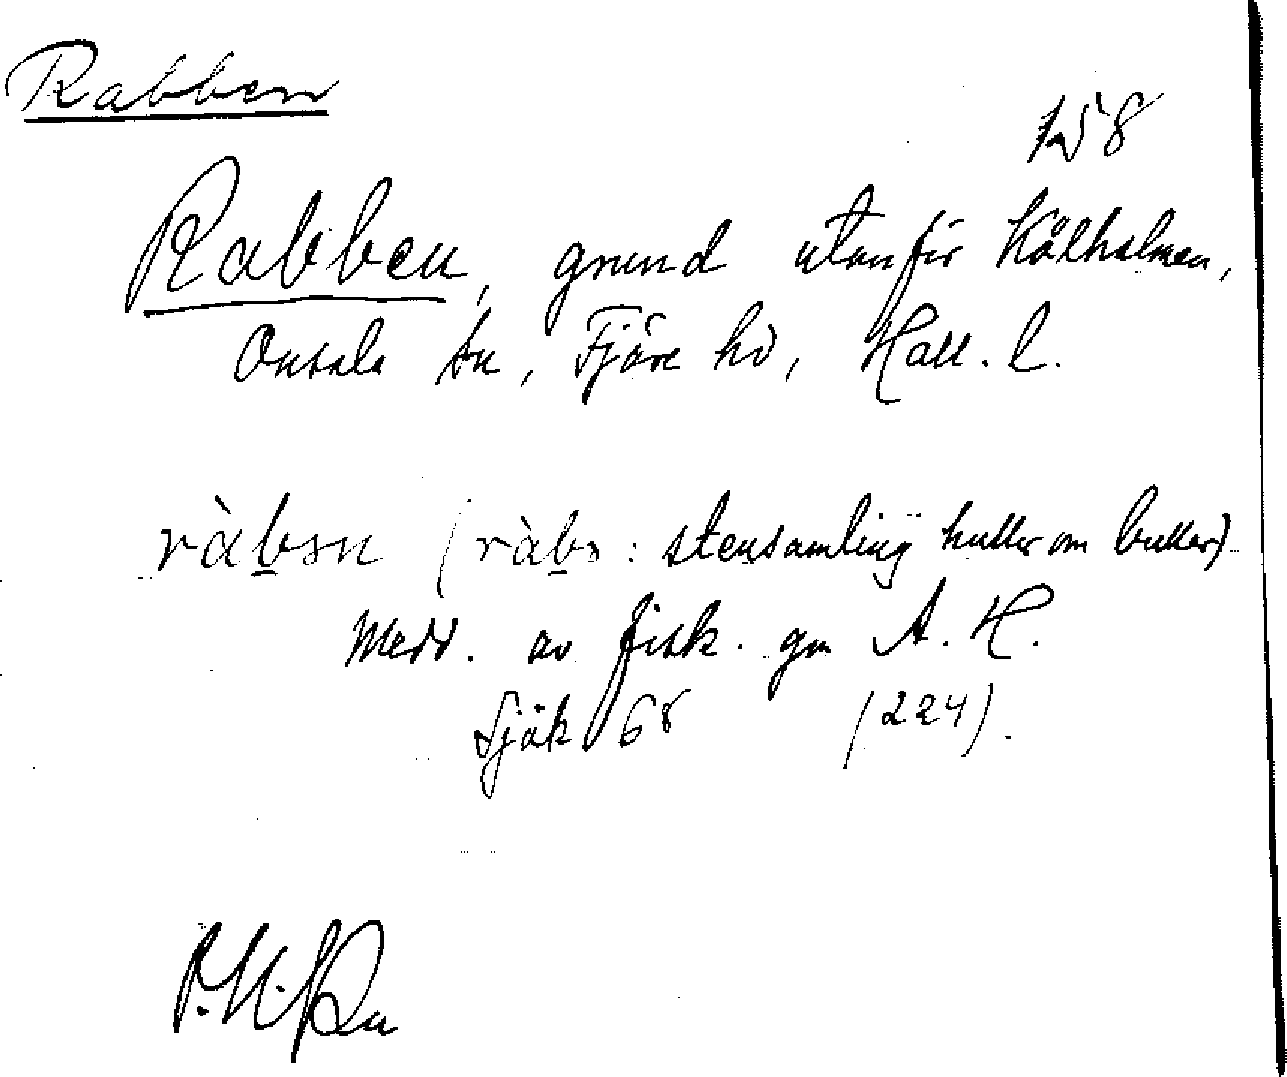 Rabben
158
Rabben, grund utanför Kålholmen,
Onsala sn, Fjäre hd, Hall. l.
ràbən (ràbə: stensamling huller om buller)
Medd. av fisk. gm A. H.
Sjök 68 (224).